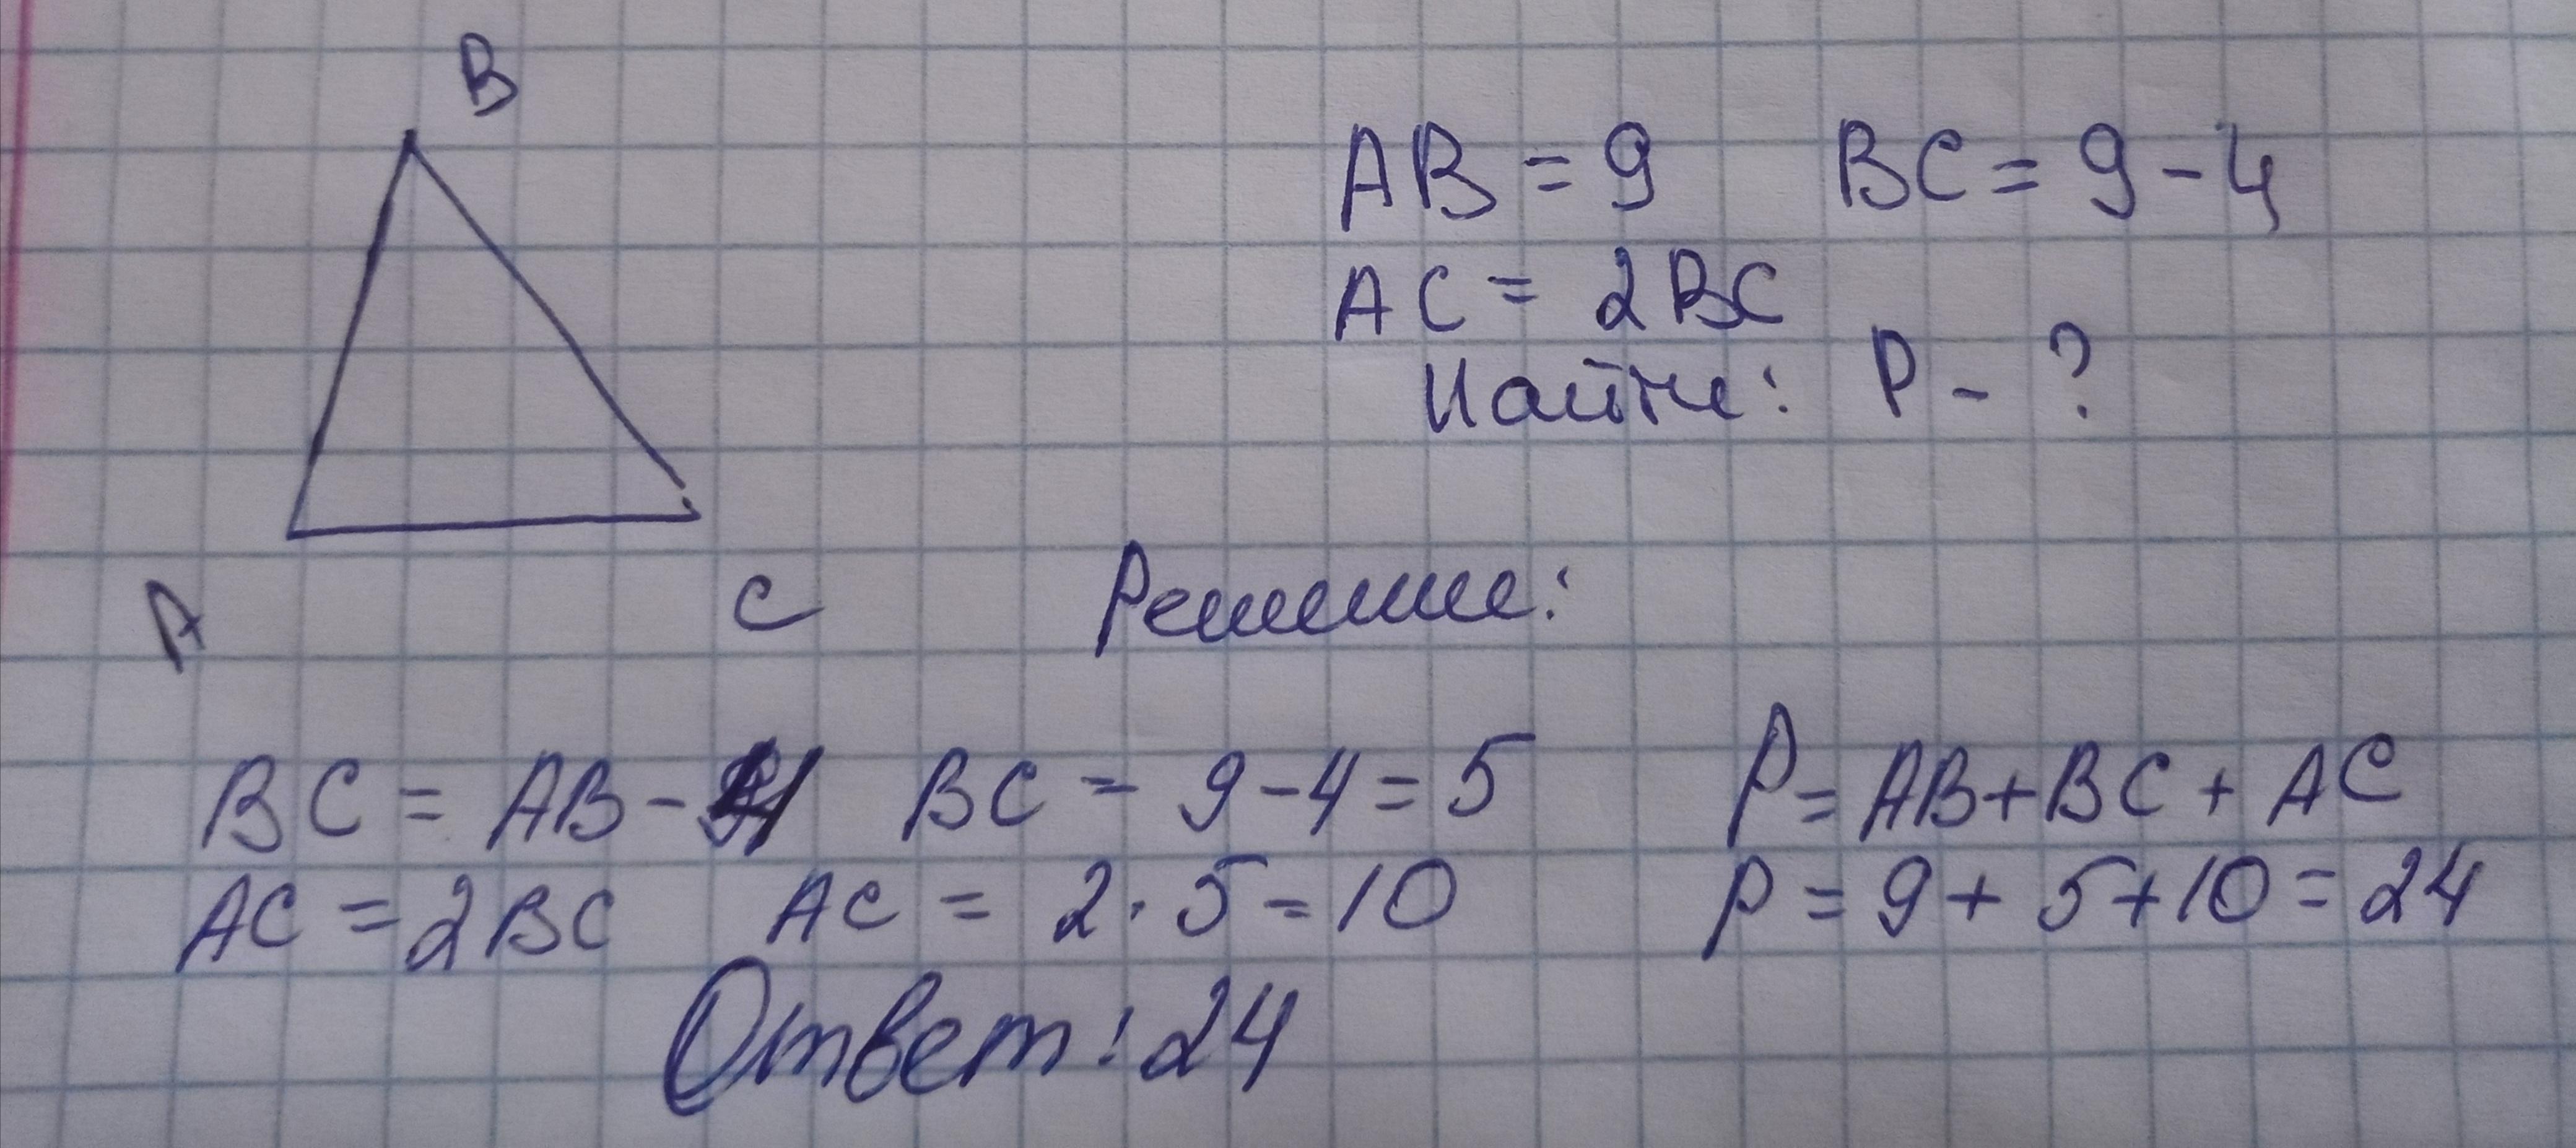 B
A
C
AB = 9 BC = 9 - 4
AC = 2BC
Найти: P - ?
Решение:
BC = AB - 4 BC = 9 - 4 = 5 P = AB + BC + AC
AC = 2BC AC = 2 · 5 = 10 P = 9 + 5 + 10 = 24
Ответ: 24